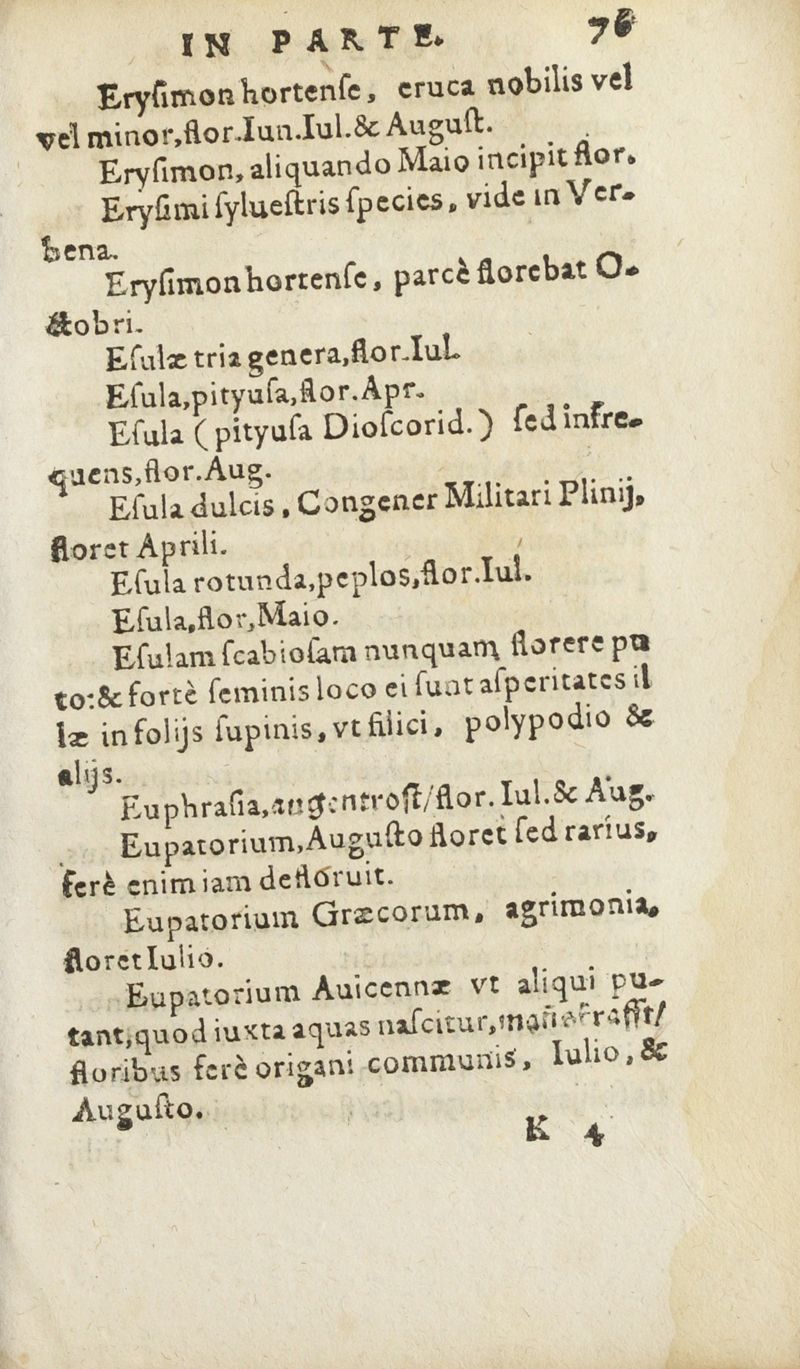 IN PARTE. 76
Eryſimon hortenſe, eruca nobilis vel
vel minor,flor.Iun.Iul.& Auguſt.
Eryſimon, aliquando Maio incipit flor.
Eryſimi ſylueſtris ſpecies, vide in Ver-
bena.
Eryſimon hortenſe, parcè florebat O-
ctobri.
Eſulæ tria genera,flor.Iul.
Eſula,pityuſa,flor.Apr.
Eſula (pityuſa Dioſcorid.) ſed infre-
quens,flor.Aug.
Eſula dulcis, Congener Militari Plinij,
floret Aprili.
Eſula rotunda,peplos,flor.Iul.
Eſula,flor,Maio.
Eſulam ſcabioſam nunquam florere pu
to:& fortè ſeminis loco ei ſunt aſperitates il
læ in folijs ſupinis, vt filici, polypodio &
alijs.
Euphraſia,augentroſt/flor. Iul.& Aug.
Eupatorium,Auguſto floret ſed rarius,
ferè enim iam defloruit.
Eupatorium Græcorum, agrimonia,
floret Iulio.
Eupatorium Auicennæ vt aliqui pu-
tant,quod iuxta aquas naſcitur,
floribus ferè origani communis, Iulio, &
Auguſto.
K 4